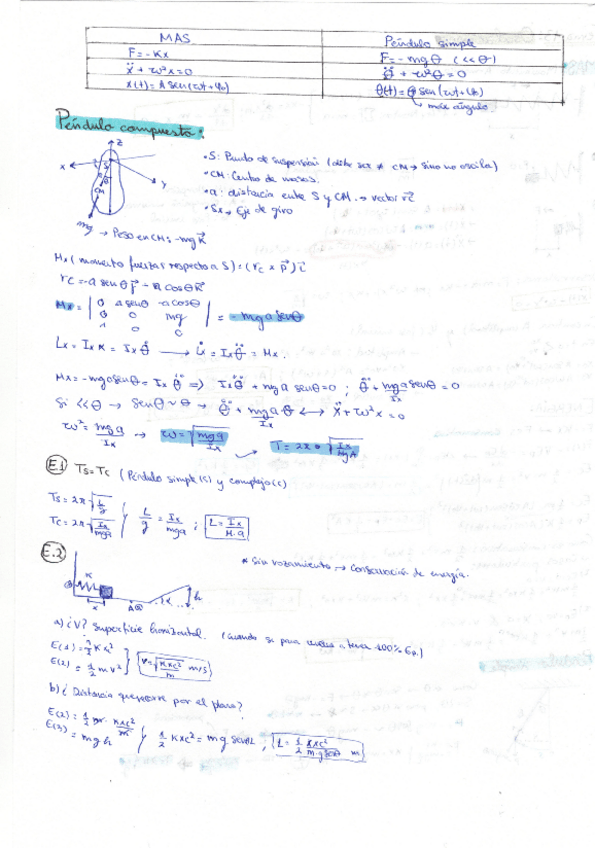 MAS Péndulo simple
F = -Kx F = -mgθ (<<θ)
ẍ + ω²x = 0 θ̈ + ω²θ = 0
x(t) = A sen(ωt+φ₀) θ(t) = θ sen(ωt+φ₀)
máx ángulo
Péndulo compuesto:
z
x
y
S
θ
CM
mg
• S: Punto de suspensión (debe ser ≠ CM → sino no oscila)
• CM: Centro de masas.
• a: distancia entre S y CM → vector r⃗c
• Sx → Eje de giro
→ Peso en CM: -mgK⃗
Mx (momento fuerzas respecto a S) = (rc × p⃗) i⃗
rc = -a senθ j⃗ - a cosθ K⃗
Mx = | 0 a senθ -a cosθ | = -mga senθ
0 0 mg
1 0 0
Lx = Ix α = Ix θ̇ → L̇x = Ix θ̈ = Mx.
Mx = -mga senθ = Ix θ̈ => Ix θ̈ + mga senθ = 0 ; θ̈ + mga senθ/Ix = 0
Si <<θ → senθ ~ θ → θ̈ + mga/Ix θ <-> ẍ + ω²x = 0
ω² = mga/Ix → ω = √(mga/Ix) → T = 2π · √(Ix/MgA)
E.1 Ts = Tc (Péndulo simple (s) y complejo (c)
Ts = 2π √(L/g)
Tc = 2π √(Ix/mga) } L/g = Ix/mga ; L = Ix/M.a
E.2
* Sin rozamiento → Conservación de energía.
K
x
A
α
h
a) ¿V? superficie horizontal.
E(1) = ½ K xc²
E(2) = ½ m v² } v = √(K xc²/m) m/s
b) ¿Distancia que recorre por el plano?
E(2) = ½ m · K xc²/m
E(3) = mgh } ½ K xc² = mg senαL ; L = ½ K xc²/(m·g senα) m